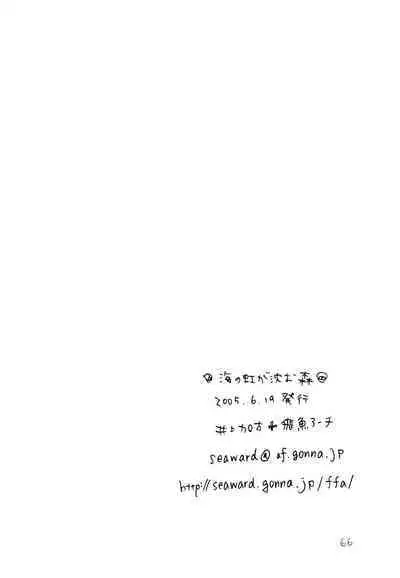 海の虹が沈む森
2005.6.19 発行
井上カロ古 飛魚ユーナ
seaward@af.gonna.jp
http://seaward.gonna.jp/ffa/
66